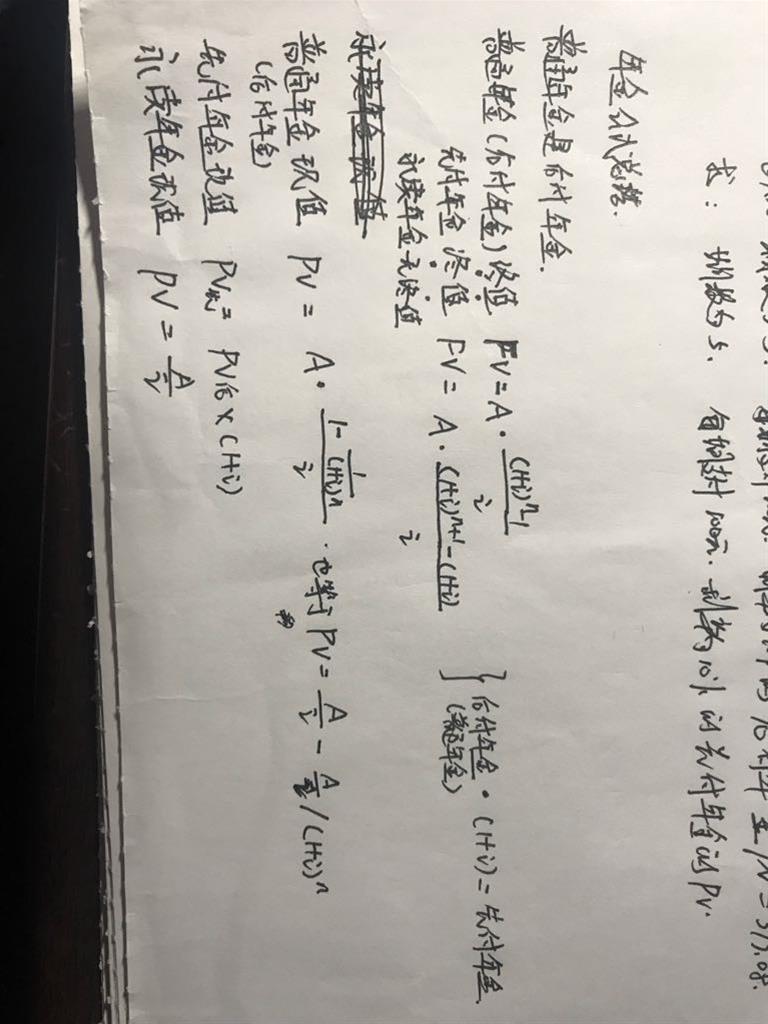 求： 期数为5. 每期付100元. 利率为10%的先付年金的PV.
年金公式总结.
普通年金是后付年金.
普通年金(后付年金)终值 FV = A · ((1+i)^n-1)/i
先付年金 终值 FV = A · ((1+i)^n+1 - (1+i))/i } 后付年金 · (1+i) = 先付年金
(普通年金)
永续年金无终值
普通年金现值 PV = A · (1 - 1/(1+i)^n)/i . 也等于 PV = A/i - A/i /(1+i)^n
(后付年金)
先付年金现值 PV先 = PV后 × (1+i)
永续年金现值 PV = A/i